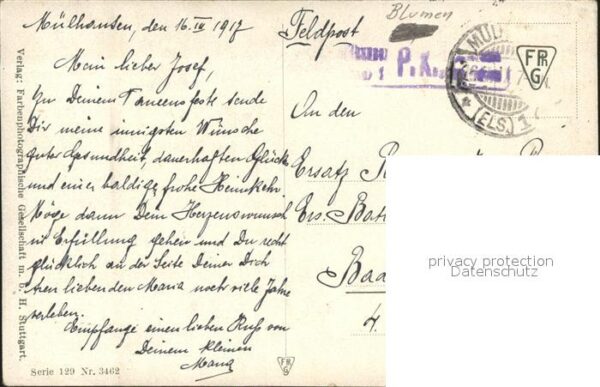 Mülhausen, den 16.III 1917
Mein lieber Josef,
Zu Deinem Namensfeste sende
Dir meine innigsten Wünsche
guter Gesundheit, dauerhaften Glück
und einer baldige frohe Heimkehr.
Möge dann Dein Herzenswunsch
in Erfüllung gehen und Du recht
glücklich an der Seite Deiner Dich
treu liebenden Maria noch viele Jahre
verleben.
Empfange einen lieben Kuss von
Deinem kleinen
Maria
Verlag: Farbenphotographische Gesellschaft m. b. H. Stuttgart.
Serie 129 Nr. 3462
Blumen
Feldpost
P.K.
MÜL
(ELS.) 1
FPR
G
An den
Ersatz
Ers. Bat
Baa
4.
FPR
G
privacy protection
Datenschutz